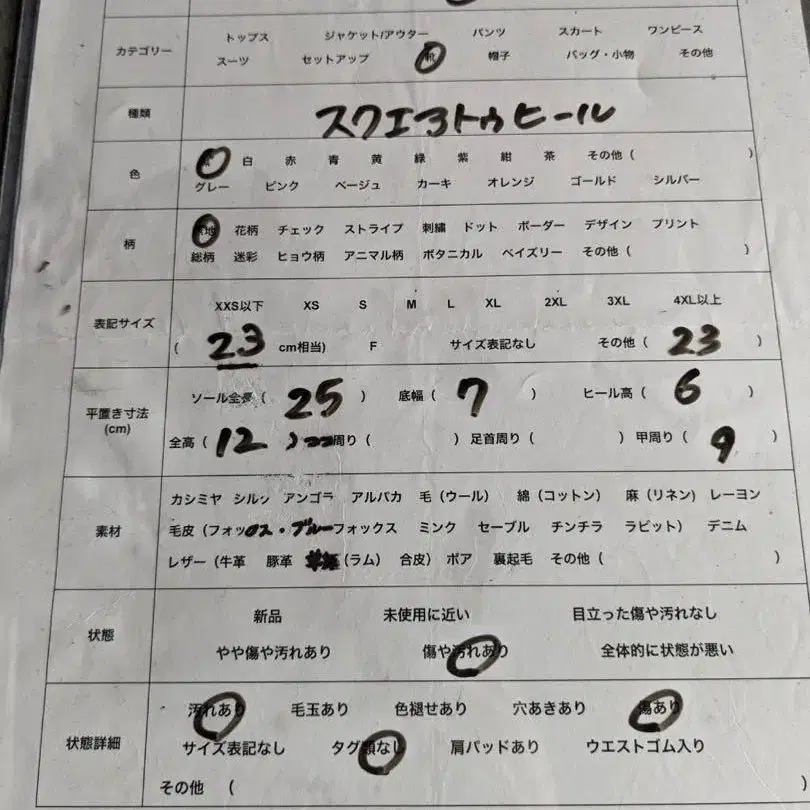 カテゴリー
トップス ジャケット/アウター パンツ スカート ワンピース
スーツ セットアップ 靴 帽子 バッグ・小物 その他
種類
スクエアトゥヒール
色
白 赤 青 黄 緑 紫 紺 茶 その他( )
グレー ピンク ベージュ カーキ オレンジ ゴールド シルバー
柄
無地 花柄 チェック ストライプ 刺繍 ドット ボーダー デザイン プリント
総柄 迷彩 ヒョウ柄 アニマル柄 ボタニカル ペイズリー その他( )
表記サイズ
XXS以下 XS S M L XL 2XL 3XL 4XL以上
( 23 cm相当) F サイズ表記なし その他( 23 )
平置き寸法
(cm)
ソール全長( 25 ) 底幅( 7 ) ヒール高( 6 )
全高( 12 ) 周り( ) 足首周り( ) 甲周り( 9 )
素材
カシミヤ シルク アンゴラ アルパカ 毛(ウール) 綿(コットン) 麻(リネン) レーヨン
毛皮(フォックス・ブルーフォックス ミンク セーブル チンチラ ラビット) デニム
レザー(牛革 豚革 (ラム) 合皮) ボア 裏起毛 その他( )
状態
新品 未使用に近い 目立った傷や汚れなし
やや傷や汚れあり 傷や汚れあり 全体的に状態が悪い
状態詳細
汚れあり 毛玉あり 色褪せあり 穴あきあり 傷あり
サイズ表記なし タグ類なし 肩パッドあり ウエストゴム入り
その他 ( )